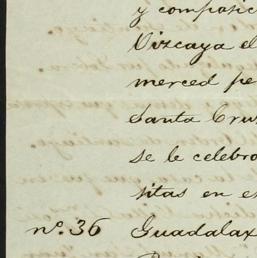 y composic
Vizcaya el
merced pe
Santa Cruz
se le celebro
sitas en es
nº. 36 Guadalax